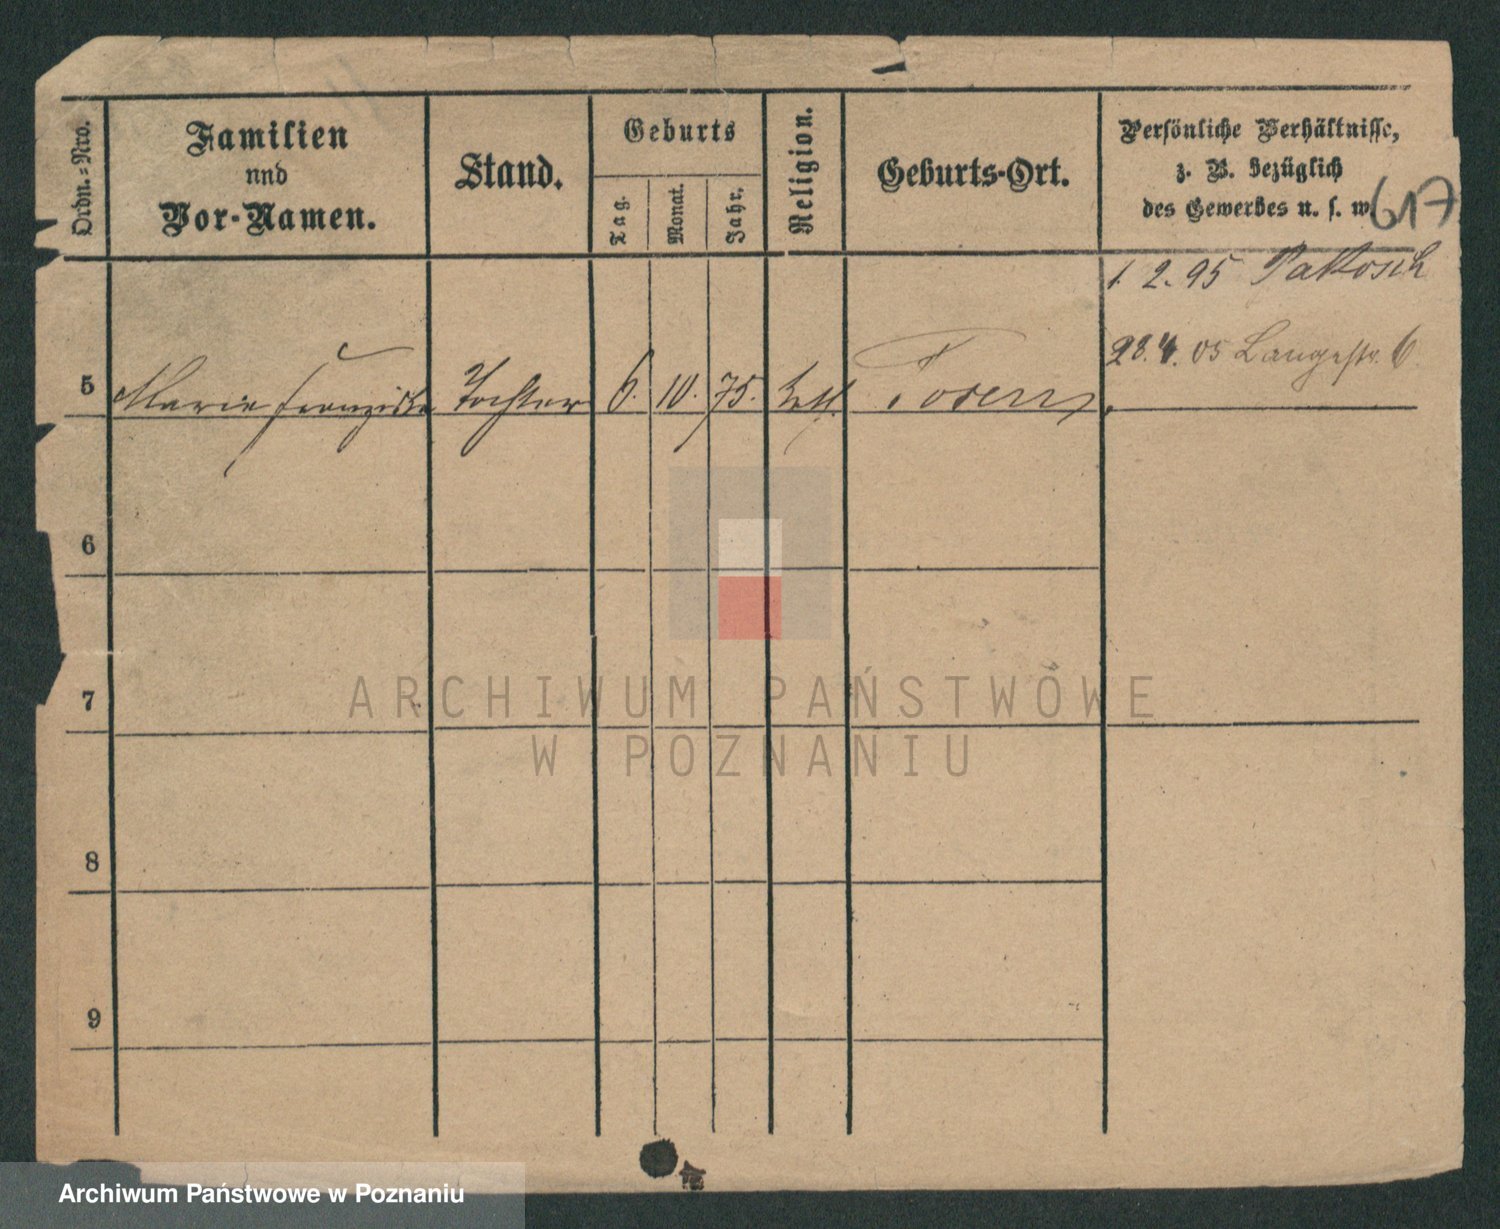 Ordn.-Nro.
Familien
und
Vor-Namen.
Stand.
Geburts
Tag.
Monat.
Jahr.
Religion.
Geburts-Ort.
Persönliche Verhältnisse,
z. B. bezüglich
des Gewerbes u. s. w.
617
1. 2. 95 Pakosch
28. 4. 05 Langestr. 6.
5 Marie Franziska Tochter 6. 10. 75. kath. Posen
6
7
8
9
ARCHIWUM PAŃSTWOWE
W POZNANIU
Archiwum Państwowe w Poznaniu